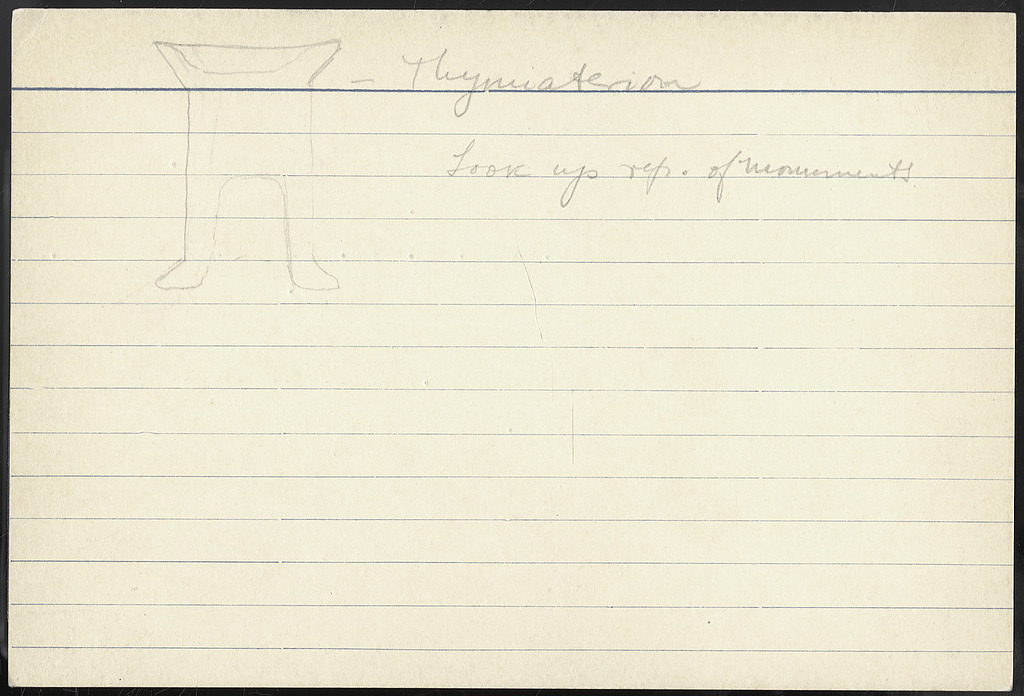 – Thymiaterion
Look up rep. of monuments